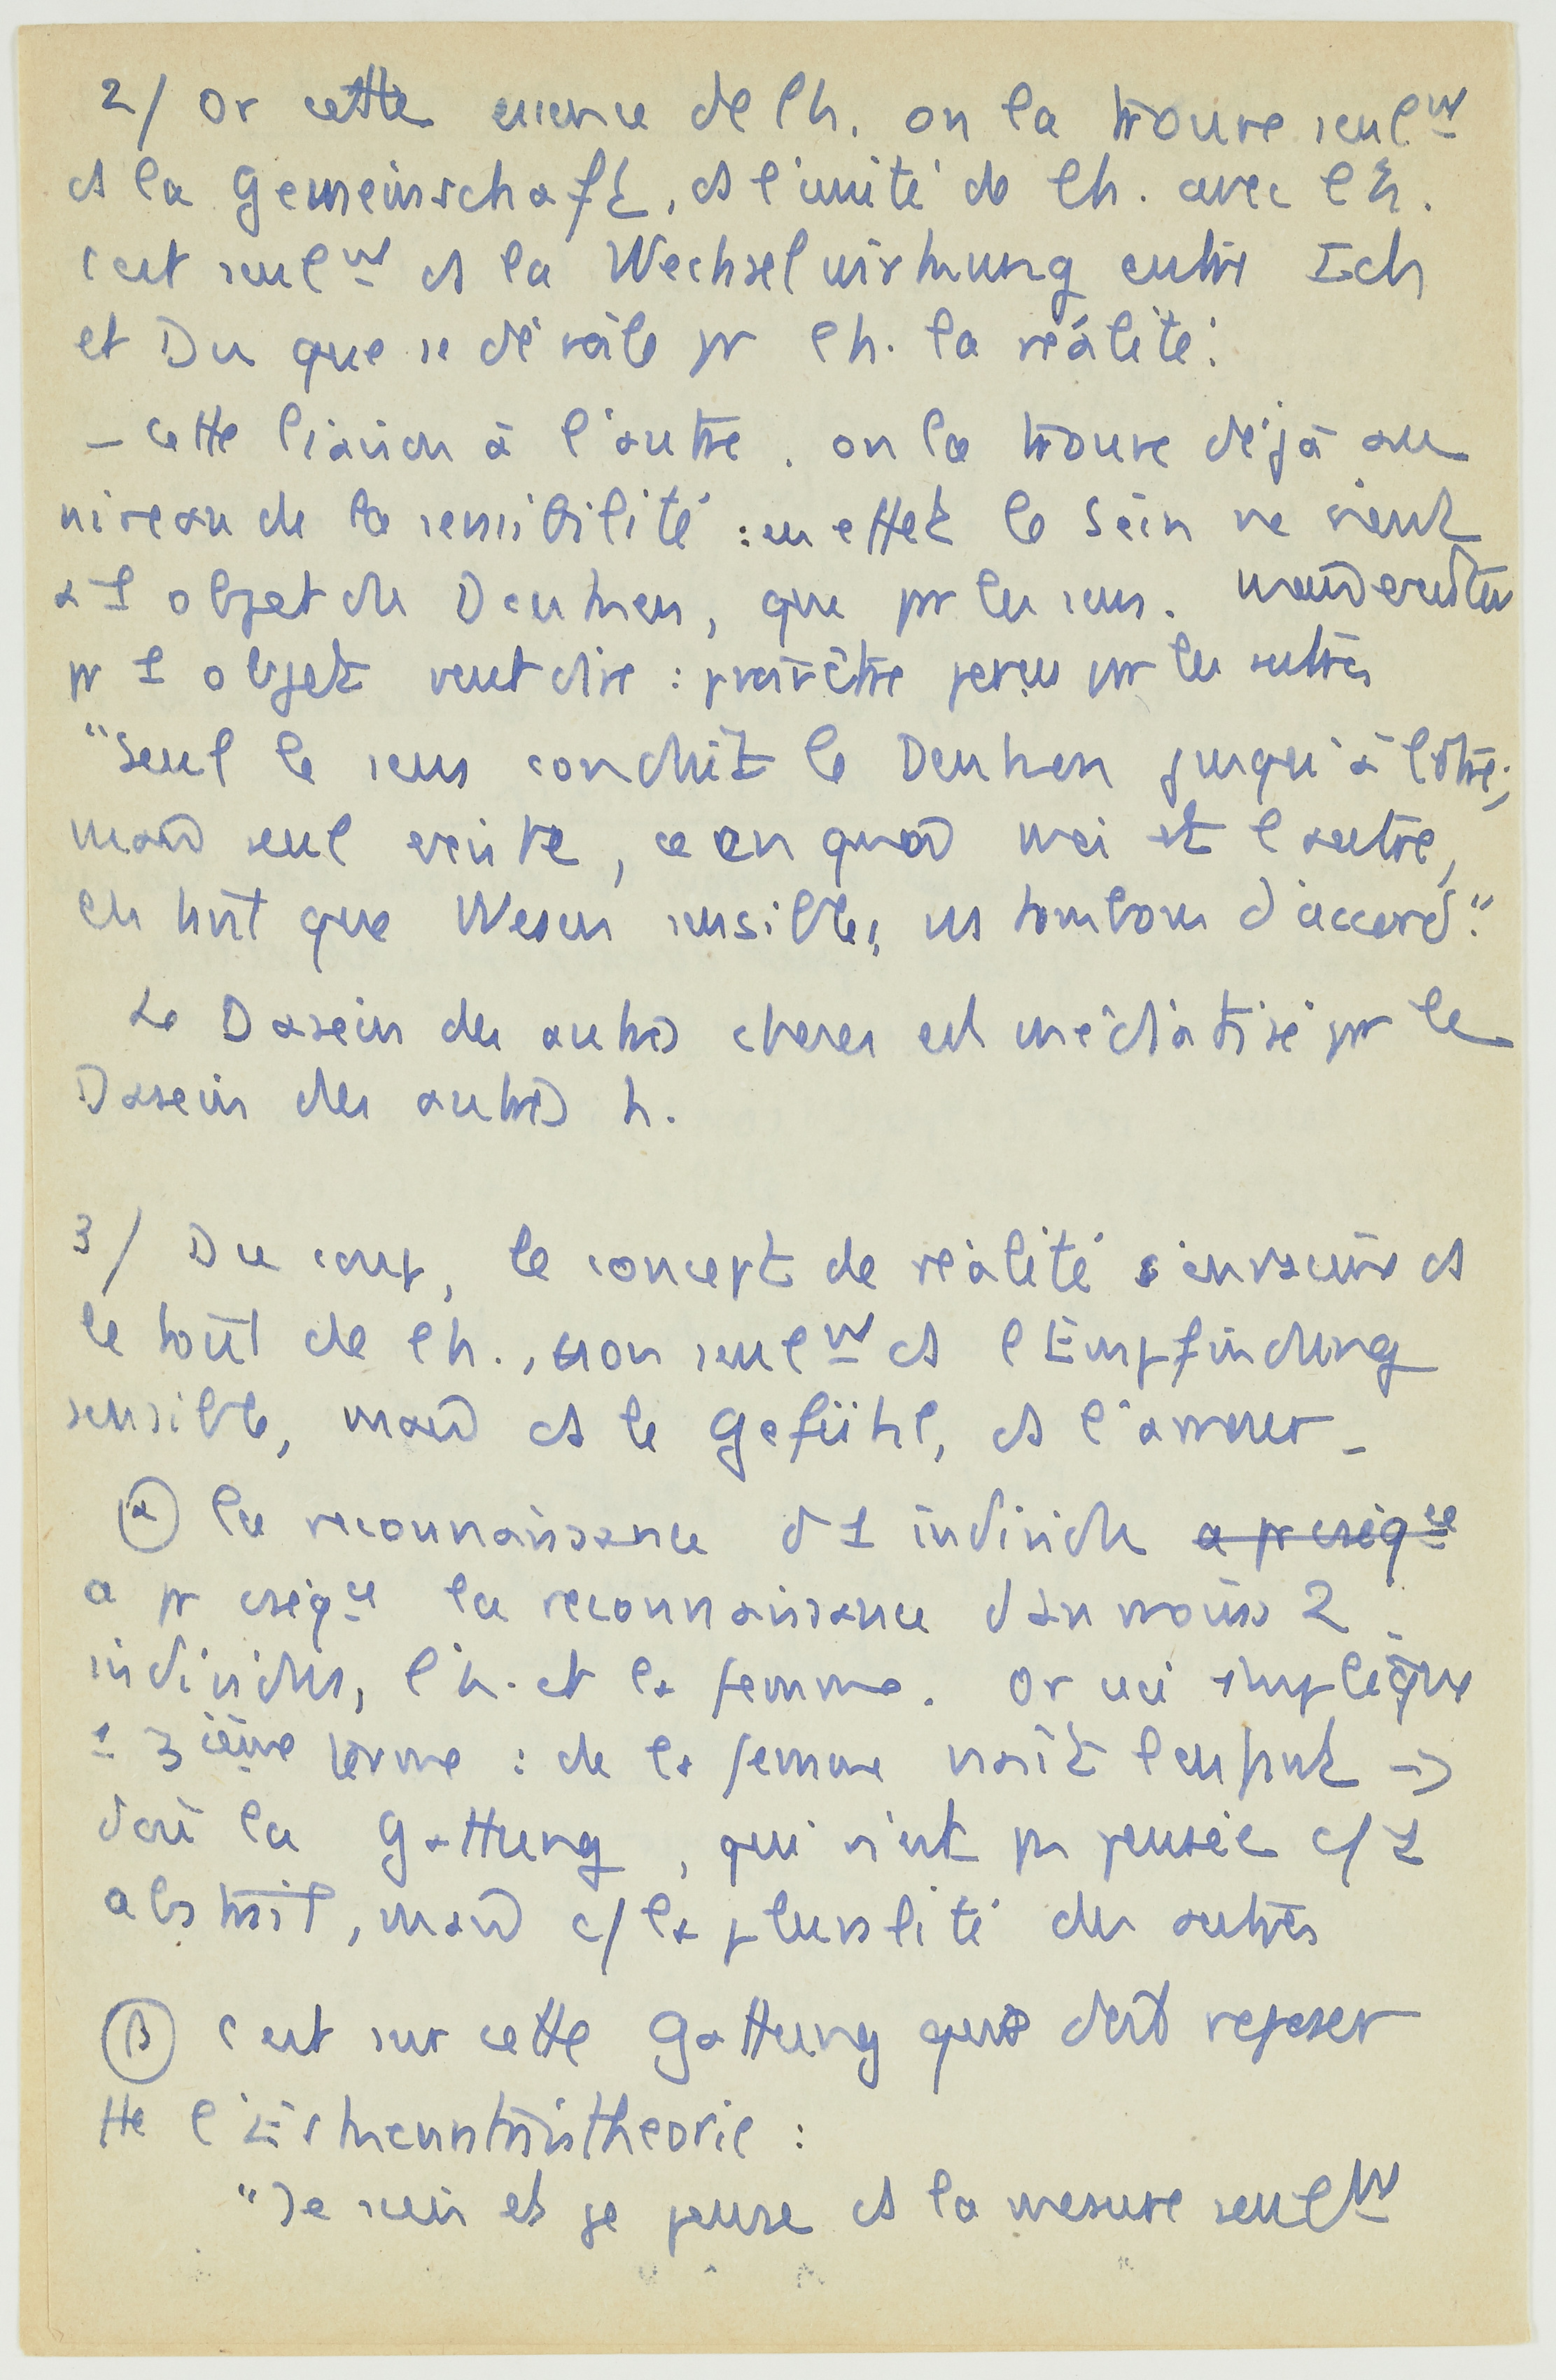 2/ Or cette essence de l'h. on la trouve seulmt
ds la Gemeinschaft, ds l'unité de l'h. avec l'h.
c'est seulmt ds la Wechselwirkung entre Ich
et Du que se dévoile pr l'h. la réalité.
– Cette liaison à l'autre, on la trouve déjà au
niveau de la sensibilité : en effet le Sein ne vient
à 1 objet du Denken, que pr les sens.
pr 1 objet veut dire : pvoir être perçu pr les autres
"Seul le sens conduit le Denken jusqu'à l'être;
mais seul existe, ce en quoi moi et l'autre,
en tant que Wesen sensibles, ns tombons d'accord."
Le Dasein des autres choses est médiatisé pr le
Dasein des autres h.
3/ Du coup, le concept de réalité s'enracine ds
le tout de l'h., non seulmt ds l'Empfindung
sensible, mais ds le Gefühl, ds l'amour –
(α) la reconnaissance d'1 individu a pr cséqce
a pr cséqce la reconnaissance d'au moins 2
individus, l'h. et la femme. Or ceci implique
1 3ième terme : de la femme naît l'enfant →
d'où la Gattung, qui n'est pas pensée c/ 1
abstrait, mais c/ la pluralité des autres
(β) c'est sur cette Gattung que doit reposer
tte l'Erkenntnistheorie :
"Je suis et je pense ds la mesure seulmt